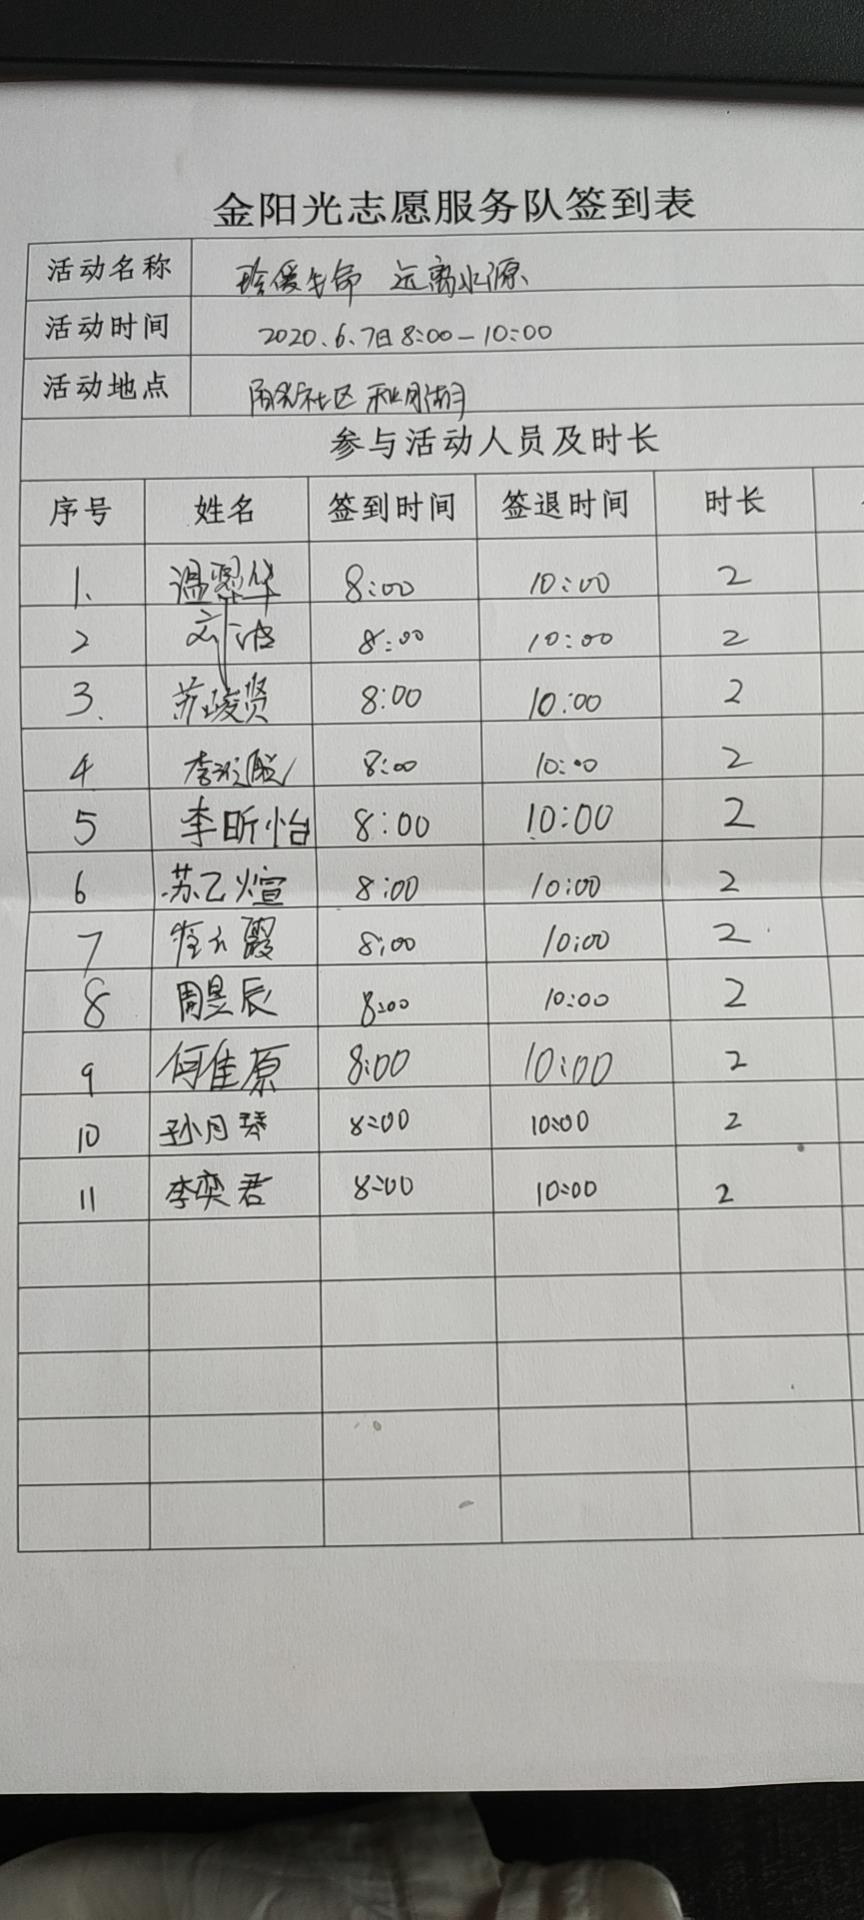 金阳光志愿服务队签到表
活动名称 珍爱生命 远离水源
活动时间 2020.6.7日8:00-10:00
活动地点 阳光社区 秋月湖
参与活动人员及时长
序号 姓名 签到时间 签退时间 时长
1. 温翠华 8:00 10:00 2
2 刘波 8:00 10:00 2
3. 苏峻贤 8:00 10:00 2
4 李 8:00 10:00 2
5 李昕怡 8:00 10:00 2
6 苏乙煊 8:00 10:00 2
7 霞 8:00 10:00 2
8 周昱辰 8:00 10:00 2
9 何佳原 8:00 10:00 2
10 孙月琴 8:00 10:00 2
11 李奕君 8:00 10:00 2